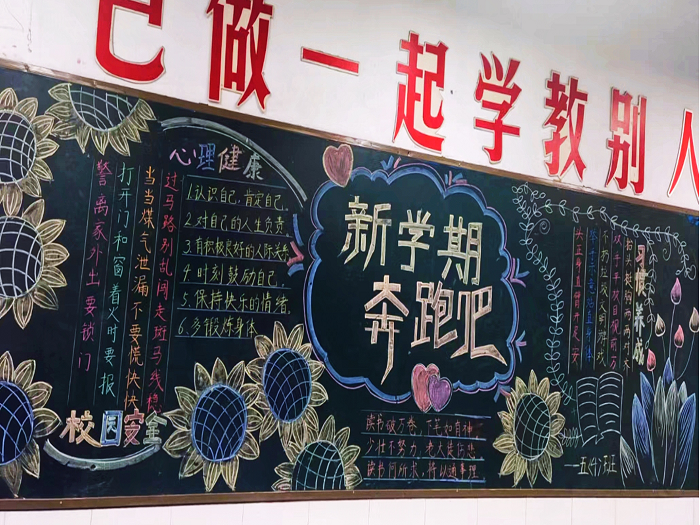 己做一起学教别人
心理健康
1.认识自己,肯定自己.
2.对自己的人生负责.
3.有积极良好的人际关系
4.时刻鼓励自己.
5.保持快乐的情绪.
6.多锻炼身体
过马路别乱闯走斑马线稳
当当煤气泄漏不要慌快快
打开门和窗着火时要报
警离家外出要锁门
校园安全
新学期
奔跑吧
读书破万卷,下笔如有神.
少壮不努力,老大徒伤悲
习惯养成
一五(4)班